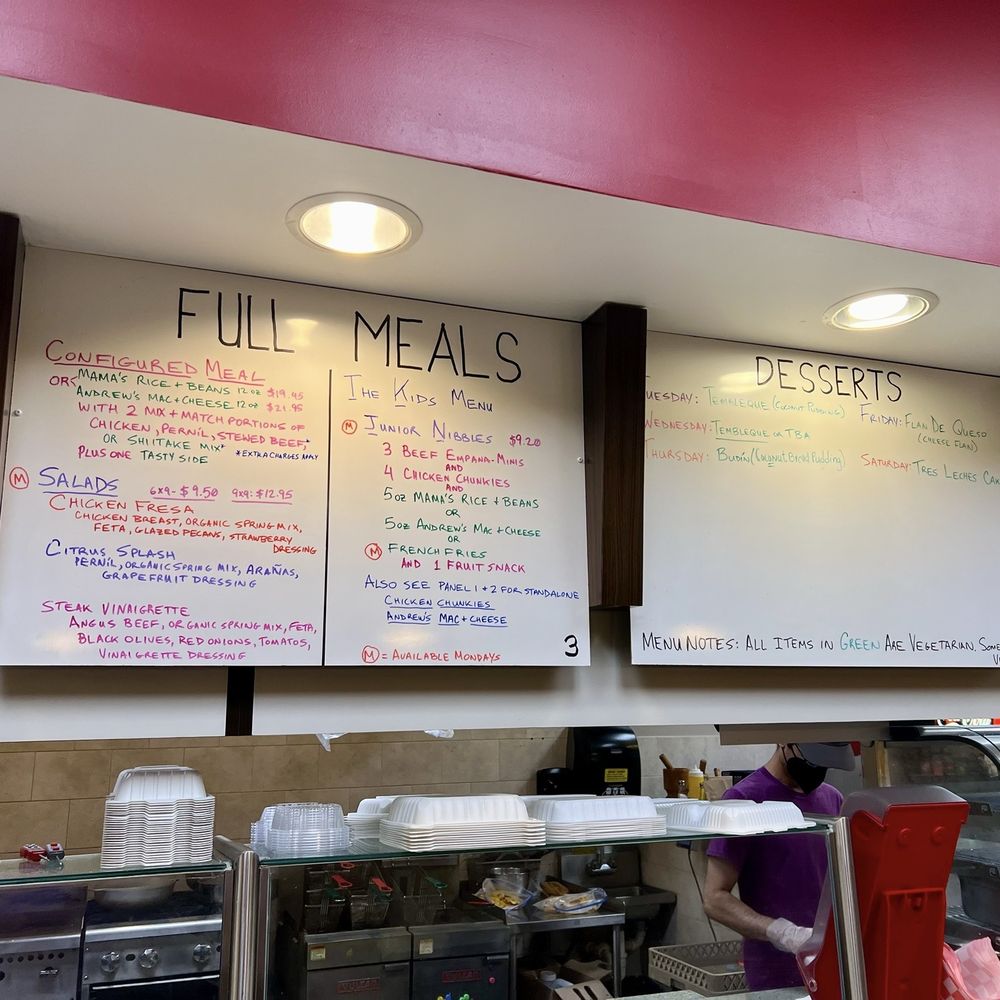 FULL MEALS
CONFIGURED MEAL
OR MAMA'S RICE + BEANS 12 OZ $19.45
ANDREW'S MAC + CHEESE 12 OZ $21.95
WITH 2 MIX + MATCH PORTIONS OF
CHICKEN, PERNÍL, STEWED BEEF,*
OR SHIITAKE MIX* *EXTRA CHARGES MAY
PLUS ONE TASTY SIDE
M SALADS 6x9 - $9.50 9x9: $12.95
CHICKEN FRESA
CHICKEN BREAST, ORGANIC SPRING MIX,
FETA, GLAZED PECANS, STRAWBERRY
DRESSING
CITRUS SPLASH
PERNÍL, ORGANIC SPRING MIX, ARAÑAS,
GRAPEFRUIT DRESSING
STEAK VINAIGRETTE
ANGUS BEEF, ORGANIC SPRING MIX, FETA,
BLACK OLIVES, RED ONIONS, TOMATOS,
VINAIGRETTE DRESSING
THE KIDS MENU
M JUNIOR NIBBLES $9.20
3 BEEF EMPANA-MINIS
AND
4 CHICKEN CHUNKIES
AND
5 OZ MAMA'S RICE + BEANS
OR
5 OZ ANDREW'S MAC + CHEESE
OR
M FRENCH FRIES
AND 1 FRUIT SNACK
ALSO SEE PANEL 1 + 2 FOR STANDALONE
CHICKEN CHUNKIES
ANDREW'S MAC + CHEESE
M = AVAILABLE MONDAYS
3
DESSERTS
TUESDAY: TEMBLEQUE (COCONUT PUDDING)
WEDNESDAY: TEMBLEQUE OR TBA
THURSDAY: BUDÍN (COCONUT BREAD PUDDING)
FRIDAY: FLAN DE QUESO
(CHEESE FLAN)
SATURDAY: TRES LECHES CAK
MENU NOTES: ALL ITEMS IN GREEN ARE VEGETARIAN. SOME
VULCAN